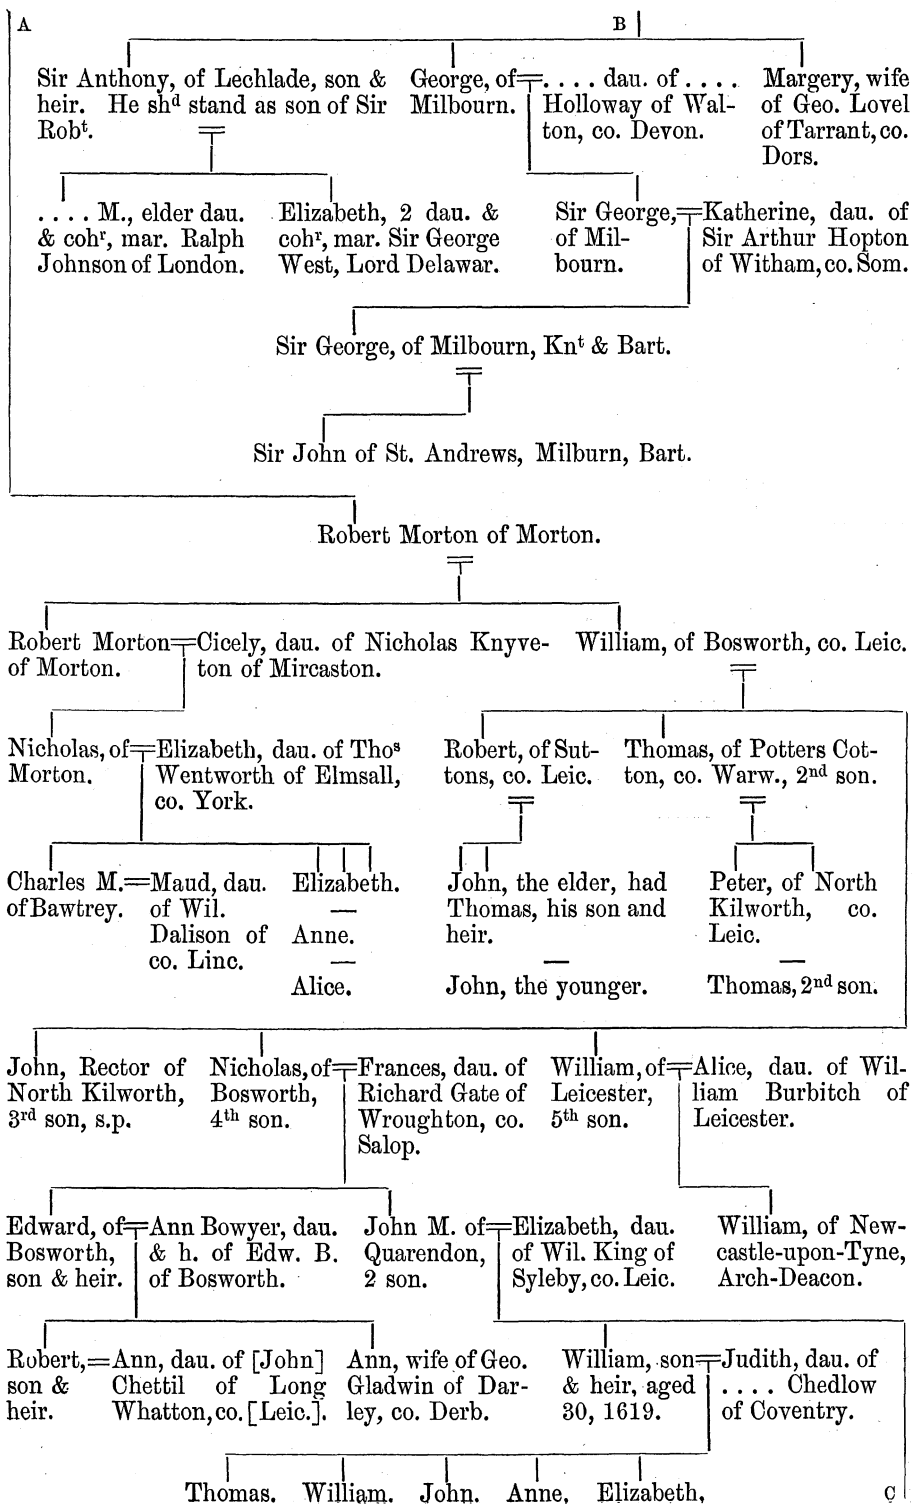 A
B
Sir Anthony, of Lechlade, son &
heir. He shᵈ stand as son of Sir
Robᵗ.
George, of
Milbourn.
. . . . dau. of . . . .
Holloway of Wal-
ton, co. Devon.
Margery, wife
of Geo. Lovel
of Tarrant, co.
Dors.
. . . . M., elder dau.
& cohʳ, mar. Ralph
Johnson of London.
Elizabeth, 2 dau. &
cohʳ, mar. Sir George
West, Lord Delawar.
Sir George,
of Mil-
bourn.
Katherine, dau. of
Sir Arthur Hopton
of Witham, co. Som.
Sir George, of Milbourn, Knᵗ & Bart.
Sir John of St. Andrews, Milburn, Bart.
Robert Morton of Morton.
Robert Morton
of Morton.
Cicely, dau. of Nicholas Knyve-
ton of Mircaston.
William, of Bosworth, co. Leic.
Nicholas, of
Morton.
Elizabeth, dau. of Thoˢ
Wentworth of Elmsall,
co. York.
Robert, of Sut-
tons, co. Leic.
Thomas, of Potters Cot-
ton, co. Warw., 2ⁿᵈ son.
Charles M.
of Bawtrey.
Maud, dau.
of Wil.
Dalison of
co. Linc.
Elizabeth.
—
Anne.
—
Alice.
John, the elder, had
Thomas, his son and
heir.
—
John, the younger.
Peter, of North
Kilworth, co.
Leic.
—
Thomas, 2ⁿᵈ son.
John, Rector of
North Kilworth,
3ʳᵈ son, s.p.
Nicholas, of
Bosworth,
4ᵗʰ son.
Frances, dau. of
Richard Gate of
Wroughton, co.
Salop.
William, of
Leicester,
5ᵗʰ son.
Alice, dau. of Wil-
liam Burbitch of
Leicester.
Edward, of
Bosworth,
son & heir.
Ann Bowyer, dau.
& h. of Edw. B.
of Bosworth.
John M. of
Quarendon,
2 son.
Elizabeth, dau.
of Wil. King of
Syleby, co. Leic.
William, of New-
castle-upon-Tyne,
Arch-Deacon.
Robert,
son &
heir.
Ann, dau. of [John]
Chettil of Long
Whatton, co. [Leic.].
Ann, wife of Geo.
Gladwin of Dar-
ley, co. Derb.
William, son
& heir, aged
30, 1619.
Judith, dau. of
. . . . Chedlow
of Coventry.
Thomas. William. John. Anne. Elizabeth,
C